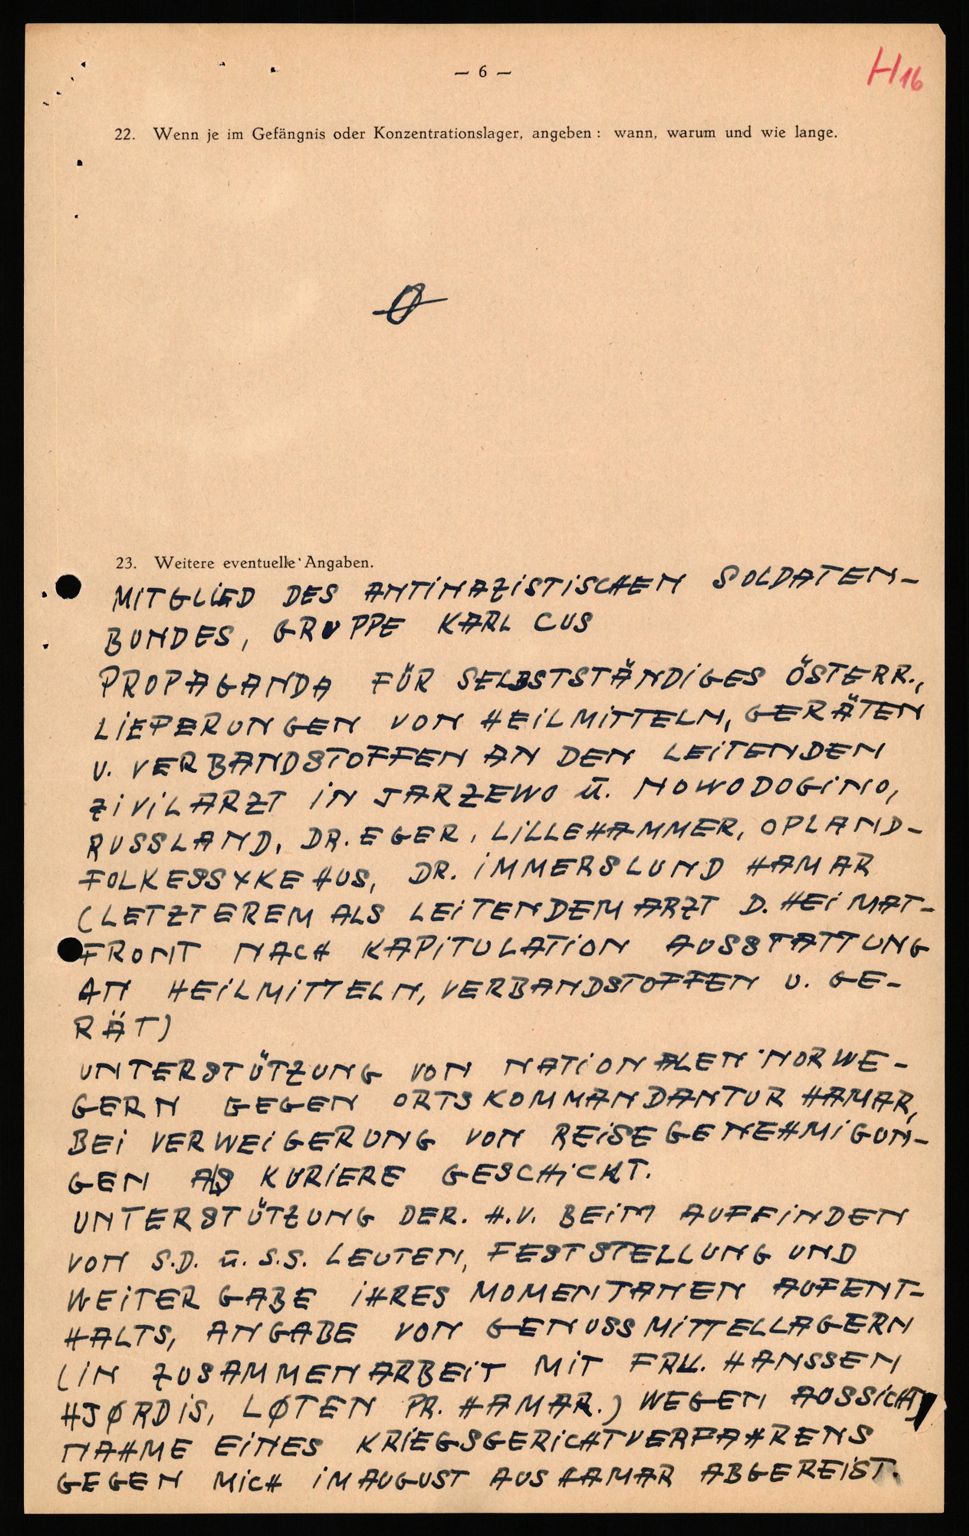 — 6 —
H16
22. Wenn je im Gefängnis oder Konzentrationslager, angeben : wann, warum und wie lange.
Ø
23. Weitere eventuelle Angaben.
MITGLIED DES ANTINAZISTISCHEN SOLDATEN-
BUNDES, GRUPPE KARL CUS
PROPAGANDA FÜR SELBSTSTÄNDIGES ÖSTERR.,
LIEFERUNGEN VON HEILMITTELN, GERÄTEN
U. VERBANDSTOFFEN AN DEN LEITENDEN
ZIVILARZT IN JARZEWO U. NOWODOGINO,
RUSSLAND, DR. EGER, LILLEHAMMER, OPLAND-
FOLKESSYKEHUS, DR. IMMERSLUND HAMAR
(LETZTEREM ALS LEITENDEM ARZT D. HEIMAT-
FRONT NACH KAPITULATION AUSSTATTUNG
AN HEILMITTELN, VERBANDSTOFFEN U. GE-
RÄT)
UNTERSTÜTZUNG VON NATIONALEN NORWE-
GERN GEGEN ORTSKOMMANDANTUR HAMAR,
BEI VERWEIGERUNG VON REISEGENEHMIGUN-
GEN ALS KURIERE GESCHICKT.
UNTERSTÜTZUNG DER. H.V. BEIM AUFFINDEN
VON S.D. U. S.S. LEUTEN, FESTSTELLUNG UND
WEITERGABE IHRES MOMENTANEN AUFENT-
HALTS, ANGABE VON GENUSSMITTELLAGERN
(IN ZUSAMMENARBEIT MIT FRL. HANSSEN
HJØRDIS, LØTEN PR. HAMAR.) WEGEN AUSSICHT
NAHME EINES KRIEGSGERICHTVERFAHRENS
GEGEN MICH IM AUGUST AUS HAMAR ABGEREIST.